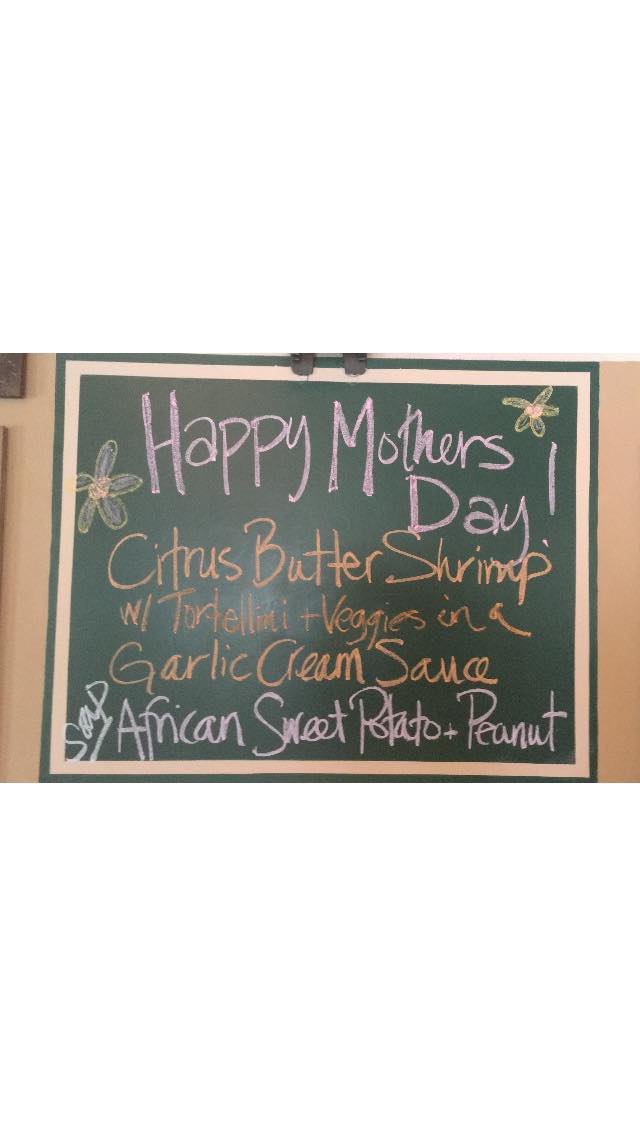 Happy Mothers
Day!
Citrus Butter Shrimp
w/ Tortellini + Veggies in a
Garlic Cream Sauce
Soup/ African Sweet Potato + Peanut